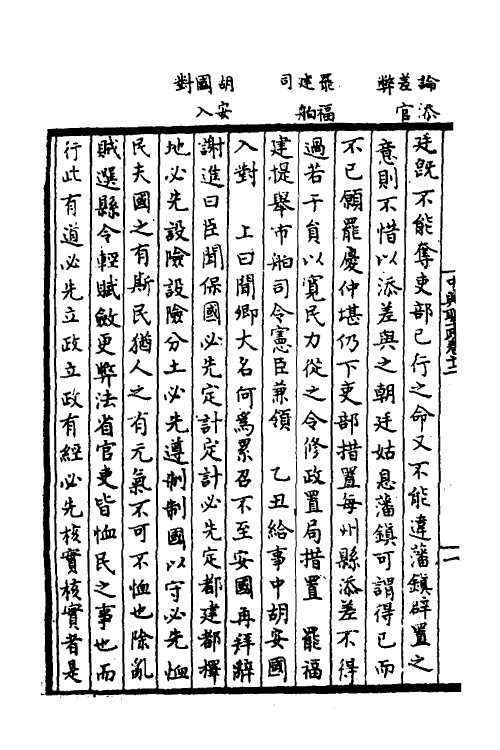 論添
差官
弊
罷福
建舶
司
胡安
國入
對
中興聖政卷十二
一
廷旣不能奪吏部已行之命又不能違藩鎮辟置之
意則不惜以添差與之朝廷姑息藩鎮可謂得已而
不已願罷慶仲堪仍下吏部措置每州縣添差不得
過若干員以寛民力從之令修政置局措置　罷福
建提舉市舶司令憲臣兼領　乙丑給事中胡安國
入對　上曰聞卿大名何爲累召不至安國再拜辭
謝進曰臣聞保國必先定計定計必先定都建都擇
地必先設險設險分土必先遵制制國以守必先恤
民夫國之有斯民猶人之有元氣不可不恤也除亂
賊選縣令輕賦斂更弊法省官吏皆恤民之事也而
行此有道必先立政立政有經必先核實核實者是